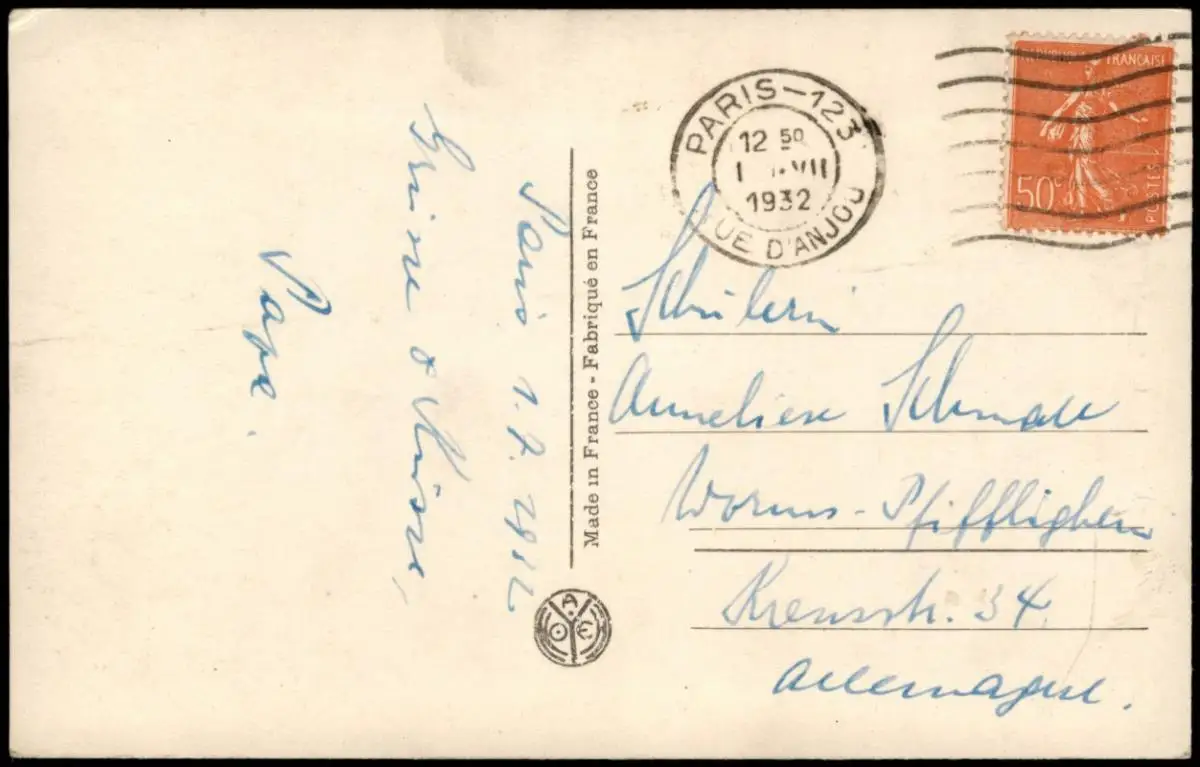 REPUBLIQUE FRANCAISE
50c
POSTES
PARIS-123
12 50
1 VII
1932
RUE D'ANJOU
Paris 1.7.1932
Grüsse & Küsse,
Papa.
Made in France - Fabriqué en France
A
O
E
Schülerin
Anneliese
Worms-Pfiffligheim
34
Allemagne.